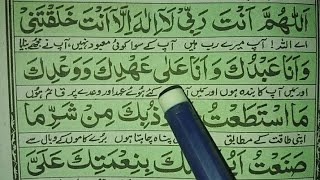 اَللّٰهُمَّ اَنْتَ رَبِّیْ لَاۤ اِلٰهَ اِلَّاۤ اَنْتَ خَلَقْتَنِیْ
اے اللہ! آپ میرے رب ہیں آپ کے سوا کوئی معبود نہیں، آپ نے مجھے
وَاَنَا عَبْدُكَ وَاَنَا عَلٰی عَهْدِكَ وَوَعْدِكَ
اور میں آپ کا بندہ ہوں اور میں آپ کے عہد اور وعدے پر قائم ہوں
مَا اسْتَطَعْتُ بِكَ مِنْ شَرِّ مَا
اپنی طاقت کے مطابق پناہ چاہتا ہوں برے کاموں کے وبال سے
صَنَعْتُ لَكَ بِنِعْمَتِكَ عَلَیَّ